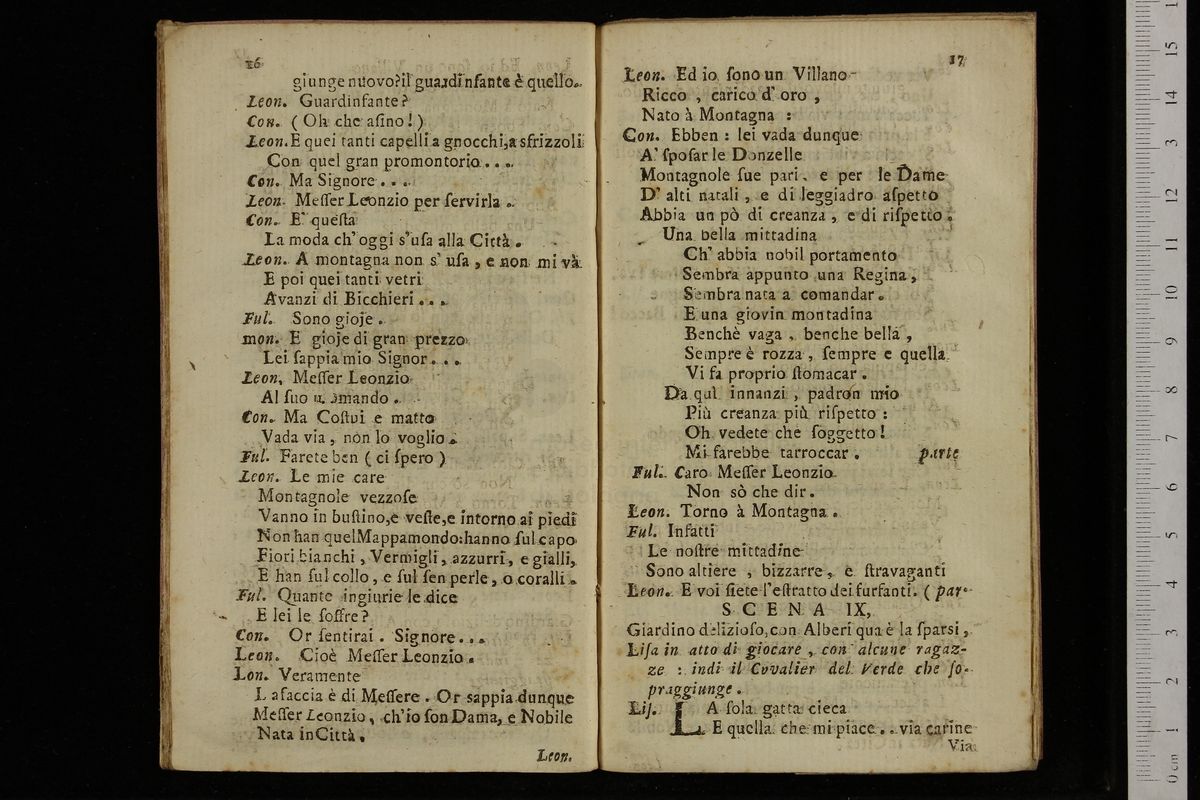 16
giunge nuovo?il guardinfante è quello.
Leon. Guardinfante?
Con. (Oh che asino!)
Leon. E quei tanti capelli a gnocchi,a sfrizzoli
Con quel gran promontorio....
Con. Ma Signore....
Leon. Messer Leonzio per servirla.
Con. E' questa
La moda ch'oggi s'usa alla Città.
Leon. A montagna non s'usa, e non mi và
E poi quei tanti vetri
Avanzi di Bicchieri...
Ful. Sono gioje.
mon. E gioje di gran prezzo
Lei sappia mio Signor....
Leon. Messer Leonzio
Al suo
Con. Ma Costui e matto
Vada via, non lo voglio.
Ful. Farete ben (ci spero)
Leon. Le mie care
Montagnole vezzose
Vanno in bustino,e veste,e intorno ai piedi
Non han quel Mappamondo:hanno sul capo
Fiori bianchi, Vermigli, azzurri, e gialli,
E han sul collo, e sul sen perle, o coralli.
Ful. Quante ingiurie le dice
E lei le soffre?
Con. Or sentirai. Signore...
Leon. Cioè Messer Leonzio.
Lon. Veramente
La faccia è di Messere. Or sappia dunque
Messer Leonzio, ch'io son Dama, e Nobile
Nata in Città.
Leon.
17
Leon. Ed io sono un Villano
Ricco, carico d'oro,
Nato à Montagna:
Con. Ebben: lei vada dunque
A' sposar le Donzelle
Montagnole sue pari, e per le Dame
D'alti natali, e di leggiadro aspetto
Abbia un pò di creanza, e di rispetto.
Una bella mittadina
Ch'abbia nobil portamento
Sembra appunto una Regina,
Sembra nata a comandar.
E una giovin montadina
Benchè vaga, benche bella,
Sempre è rozza, sempre e quella
Vi fa proprio stomacar.
Da quì innanzi, padron mio
Più creanza più rispetto:
Oh vedete che soggetto!
Mi farebbe tarroccar. parte
Ful. Caro Messer Leonzio
Non sò che dir.
Leon. Torno à Montagna.
Ful. Infatti
Le nostre mittadine
Sono altiere, bizzarre, e stravaganti
Leon. E voi siete l'estratto dei furfanti. (par.
SCENA IX,
Giardino delizioso,con Alberi qua è la sparsi,
Lisa in atto di giocare, con alcune ragaz-
ze: indi il Covalier del Verde che so-
praggiunge.
Lis. LA sola gatta cieca
E quella che mi piace.. via carine
Via